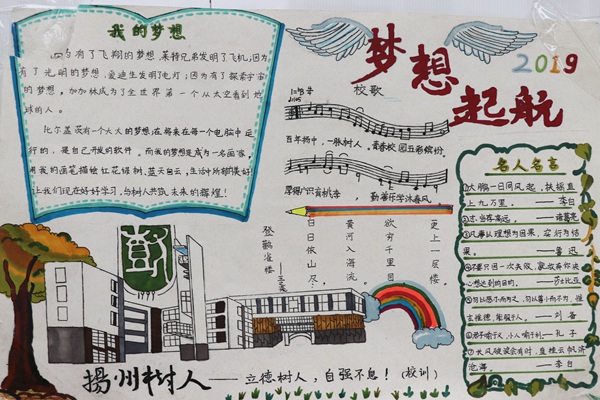 我的梦想
因为有了飞翔的梦想,莱特兄弟发明了飞机,因为
有了光明的梦想,爱迪生发明了电灯;因为有了探索宇宙
的梦想,加加林成为了全世界第一个从太空看到地
球的人。
比尔盖茨有一个大大的梦想;在将来每一个电脑中运
行的,是自己开发的软件。而我的梦想是成为一名画家,
用我的画笔描绘红花绿树,蓝天白云,生活中所有的美好
让我们现在好好学习,与树人共筑未来的辉煌!
梦想
起航
2019
校歌
百年扬中,一脉树人。青春校园五彩缤纷。
勤善乐学沐春风。
登鹳雀楼
——王之涣
白日依山尽,
黄河入海流。
欲穷千里目
更上一层楼。
名人名言
①大鹏一日同风起,扶摇直
上九万里。——李白
②志当存高远。——诸葛亮
③凡事以理想为因果,实行为结
果。——鲁迅
④不要只因一次失败,就放弃你决
心想达到的目的。——莎士比亚
——刘备
⑥君子喻于义,小人喻于利——孔子
⑦长风破浪会有时,直挂云帆济
沧海。——李白
扬州树人——立德树人,自强不息!(校训)